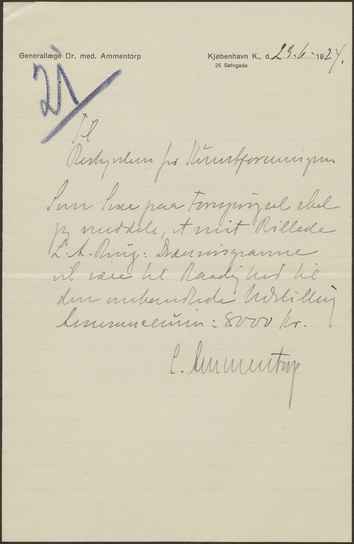 Generallæge Dr. med. Ammentorp
Kjøbenhavn K., d. 23-6-1924.
25 Sølvgade
21
Til
Bestyrelsen for Kunstforeningen
Som Svar paa Forespørgsel skal
jeg meddele, at mit Billede
L. A. Ring: Drænrørsgravere
vil være til Raadighed til
den Udstilling
Assurancesum: 8000 Kr.
C. Ammentorp